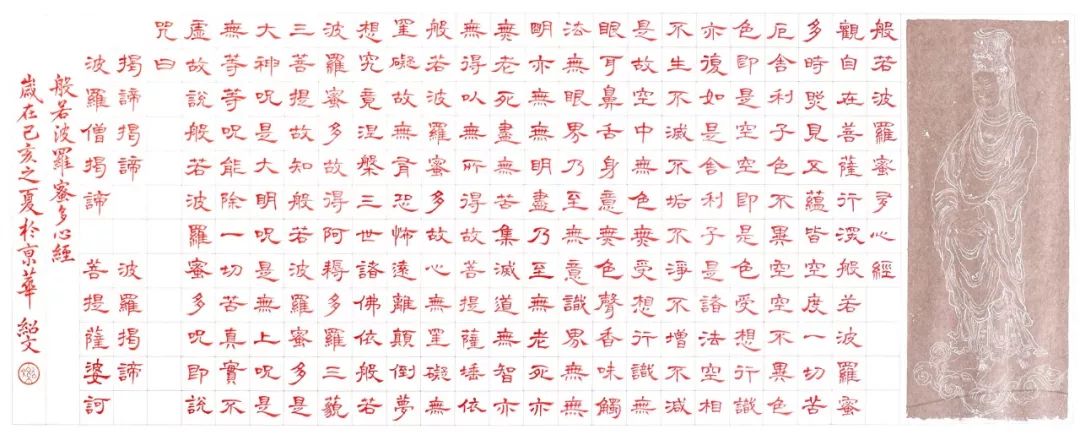 般若波羅蜜多心經
觀自在菩薩行深般若波羅蜜
多時照見五蘊皆空度一切苦
厄舍利子色不異空空不異色
色即是空空即是色受想行識
亦復如是舍利子是諸法空相
不生不滅不垢不淨不增不減
是故空中無色無受想行識無
眼耳鼻舌身意無色聲香味觸
法無眼界乃至無意識界無無
明亦無無明盡乃至無老死亦
無老死盡無苦集滅道無智亦
無得以無所得故菩提薩埵依
般若波羅蜜多故心無罣礙無
罣礙故無有恐怖遠離顛倒夢
想究竟涅槃三世諸佛依般若
波羅蜜多故得阿耨多羅三藐
三菩提故知般若波羅蜜多是
大神咒是大明咒是無上咒是
無等等咒能除一切苦真實不
虛故說般若波羅蜜多咒即說
咒曰
揭諦揭諦 波羅揭諦
波羅僧揭諦 菩提薩婆訶
般若波羅蜜多心經
歲在己亥之夏於京華 紹文